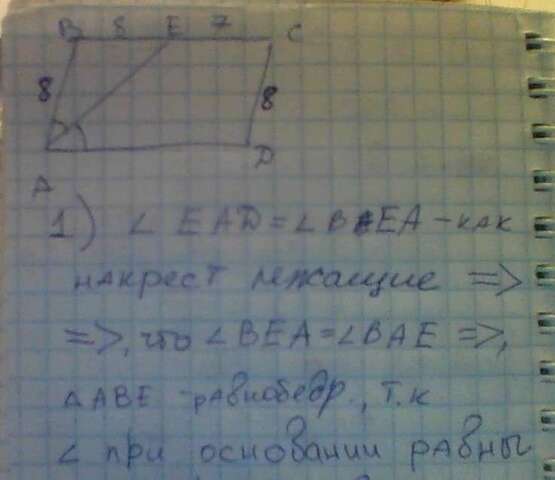 B 8 E 7 C
8 8
A D
1) ∠ EAD = ∠ BEA - как
накрест лежащие =>
=>, что ∠ BEA = ∠ BAE =>,
△ ABE - равнобедр., т.к
∠ при основании равны